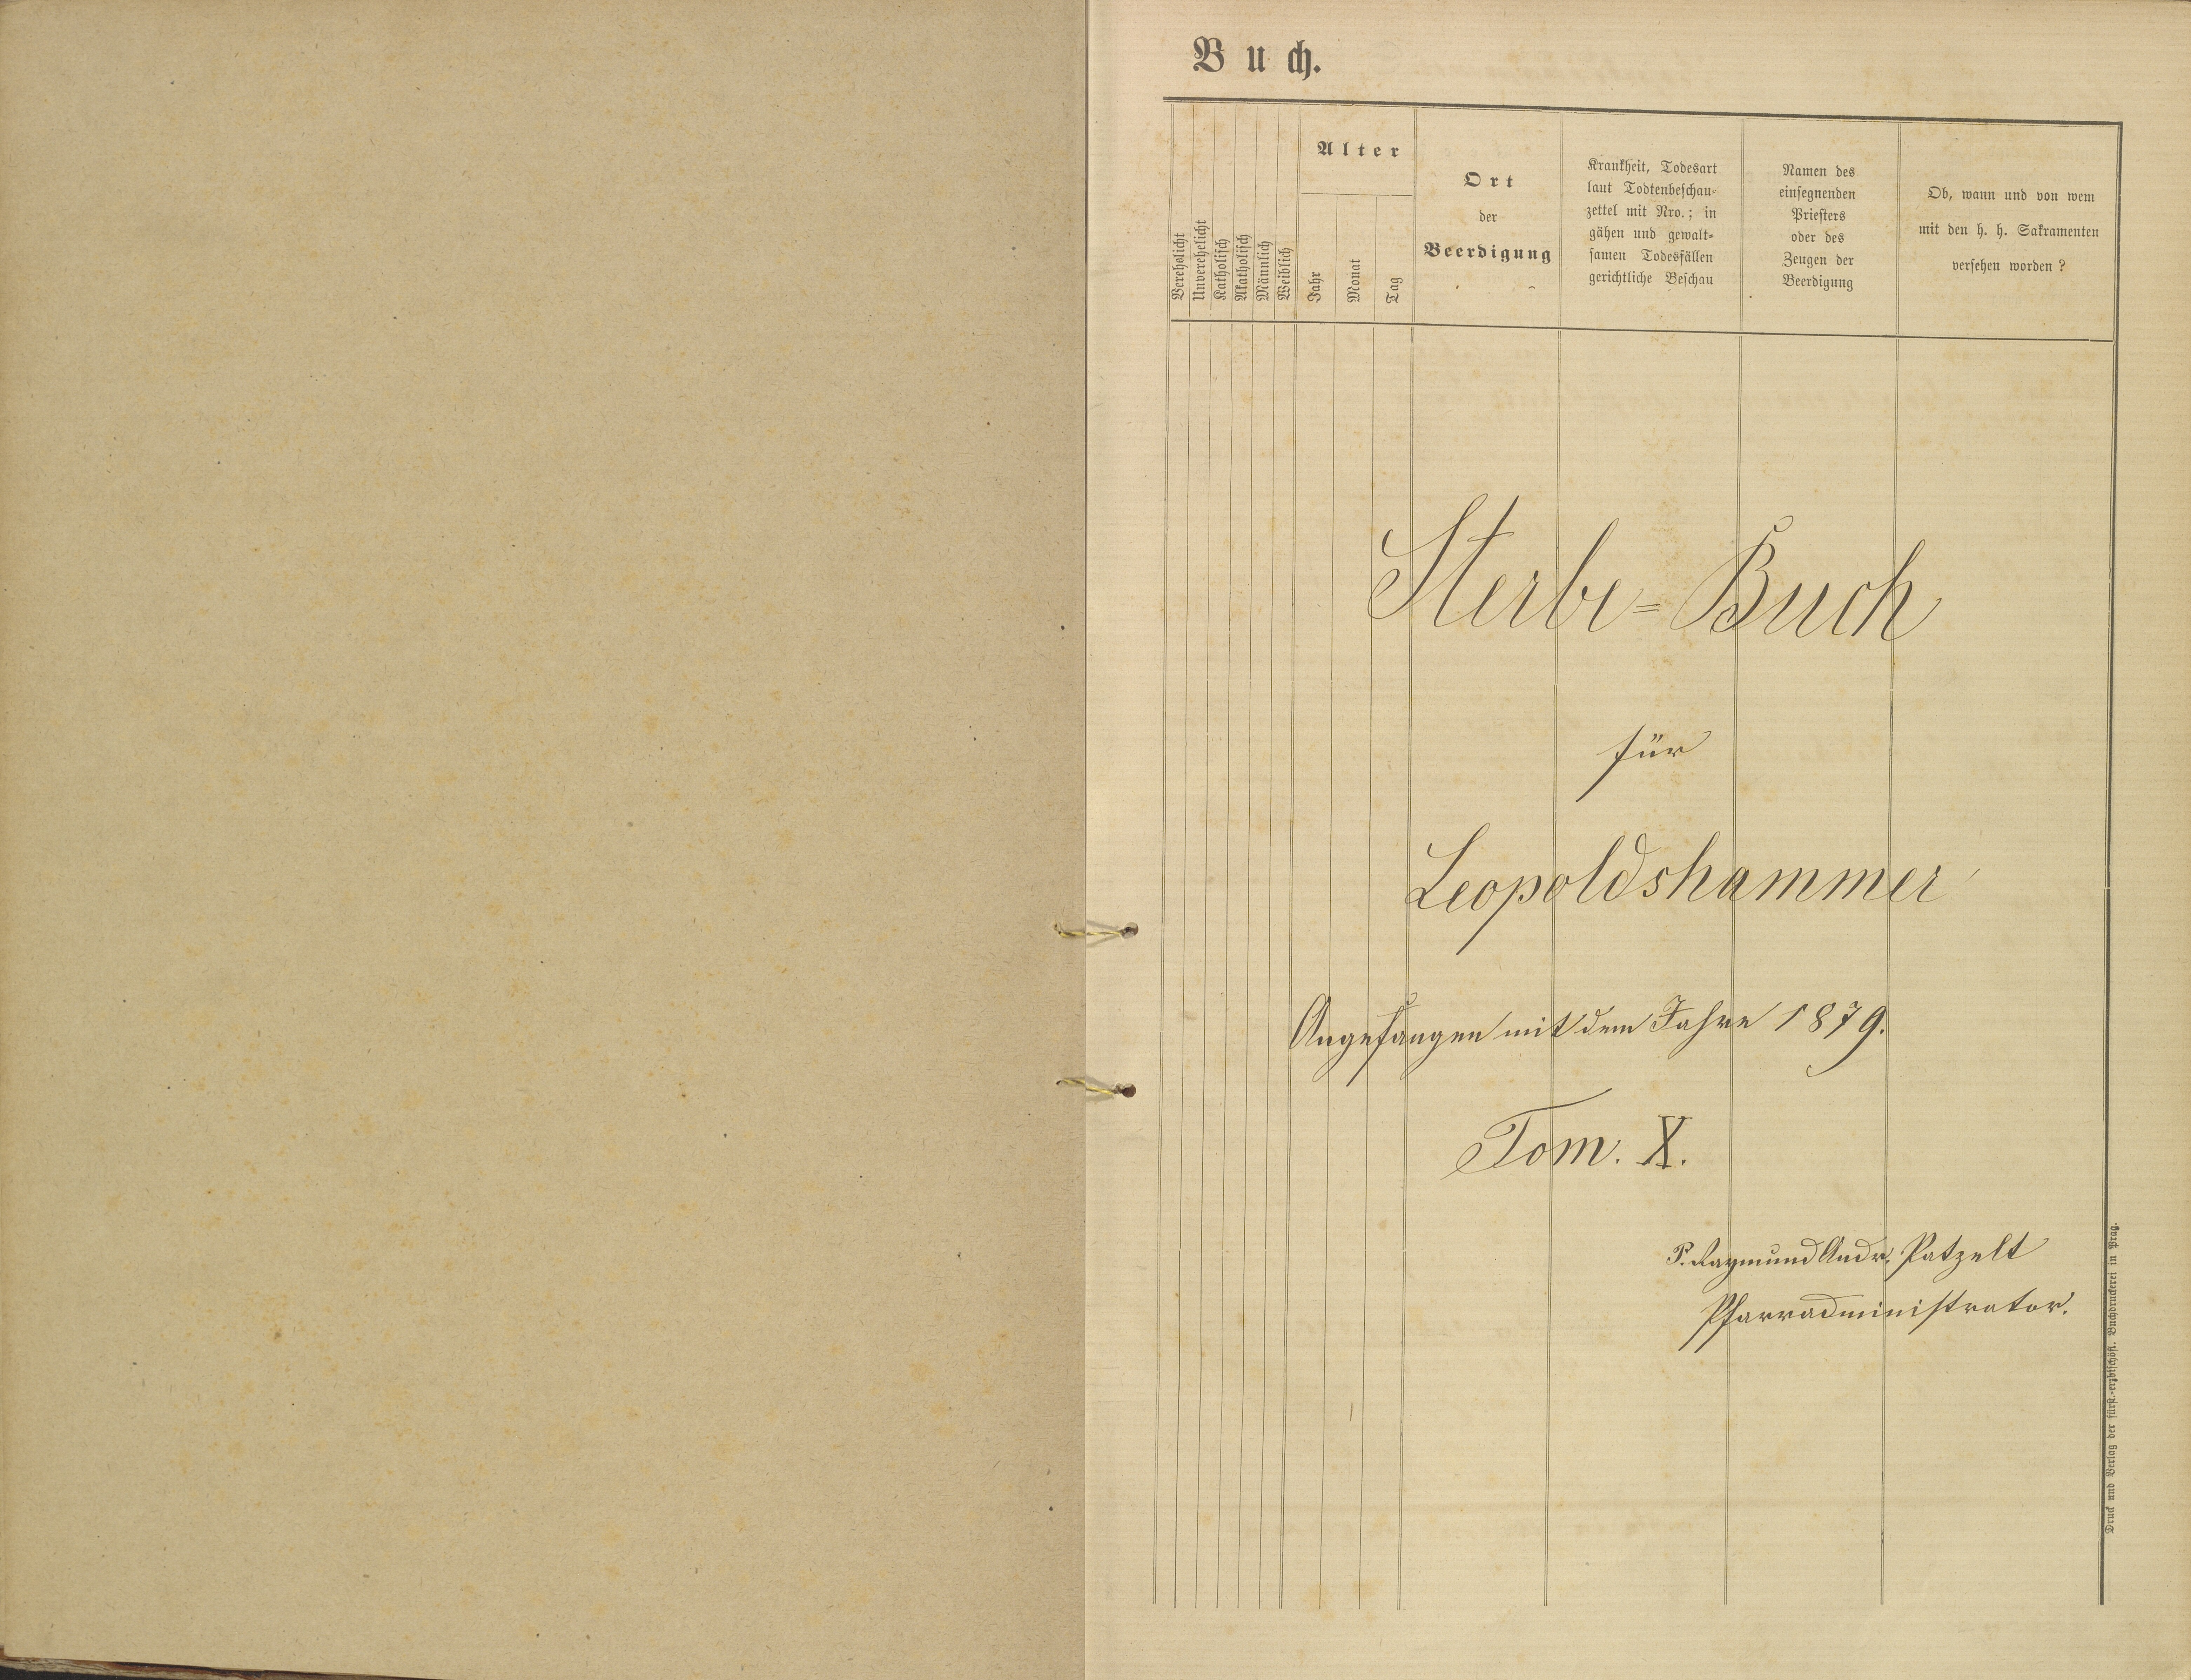 Buch.
Verehelicht
Unverehelicht
Katholisch
Akatholisch
Männlich
Weiblich
Alter
Jahr
Monat
Tag
Ort
der
Beerdigung
Krankheit, Todesart
laut Todtenbeschau-
zettel mit Nro.; in
gähen und gewalt-
samen Todesfällen
gerichtliche Beschau
Namen des
einsegnenden
Priesters
oder des
Zeugen der
Beerdigung
Ob, wann und von wem
mit den h. h. Sakramenten
versehen worden?
Sterbe=Buch
für
Leopoldshammer
Angefangen mit dem Jahre 1879.
Tom. X.
P. Raymund Andr. Patzelt
Pfarradministrator.
Druck und Verlag der fürst.-erzbischöfl. Buchdruckerei in Prag.